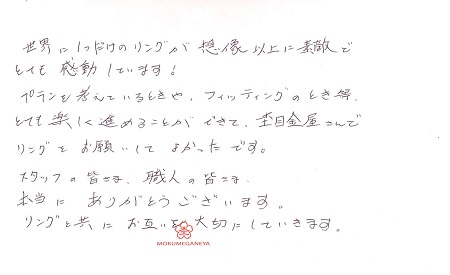 世界に1つだけのリングが想像以上に素敵で
とても感動しています!
プランを考えているときや、フィッティングのとき等、
とても楽しく進めることができて、杢目金屋さんで
リングをお願いして よかったです。
スタッフの皆さま、職人の皆さま、
本当に ありがとうございます。
リングと共に お互いを大切にしていきます。
MOKUMEGANEYA